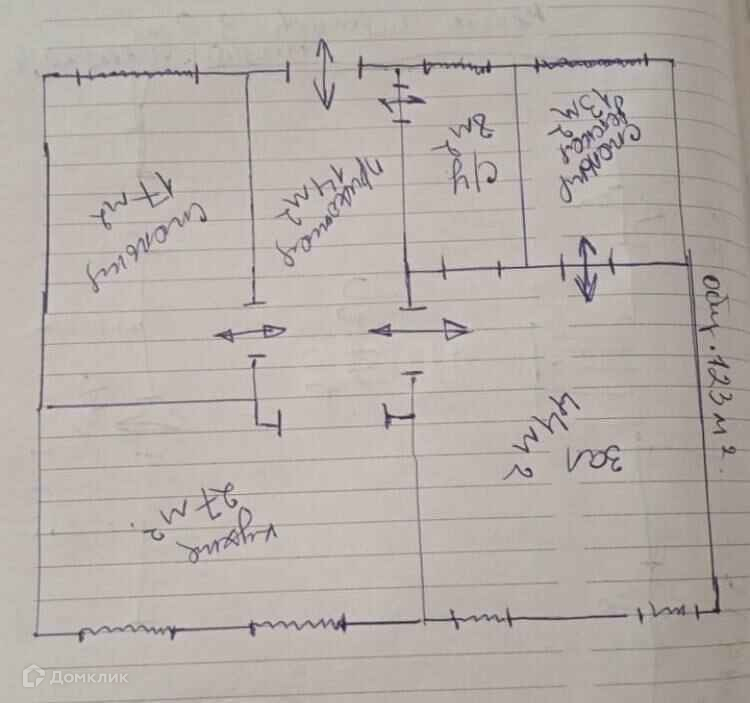 спальня
17 м2
прихожая
14 м2
с/у
8 м2
спальня
детская
13 м2
общ. 123 м2.
зал
44 м 2
кухня
27 м2
Домклик